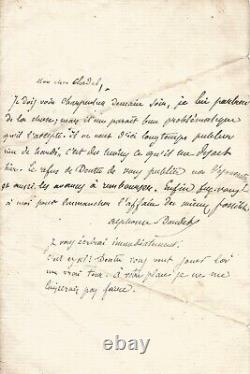 Mon cher Cladel,
Je dois voir Charpentier demain soir, je lui parlerai
de la chose; mais il me parait bien problématique
qu'il l'accepte. Il ne veut d'ici longtemps publier
rien de Cladel, c'est du moins ce qu'il me disait
hier. Le refus de Dentu de vous publier
aussi, les avances à rembourser. Enfin fiez-vous
à moi pour emmancher l'affaire du mieux possible
Alphonse Daudet
Je vous écrirai immédiatement.
Dentu vous veut jouer là
un vilain tour. à votre place je ne me
laisserais pas faire.
© ebay.com